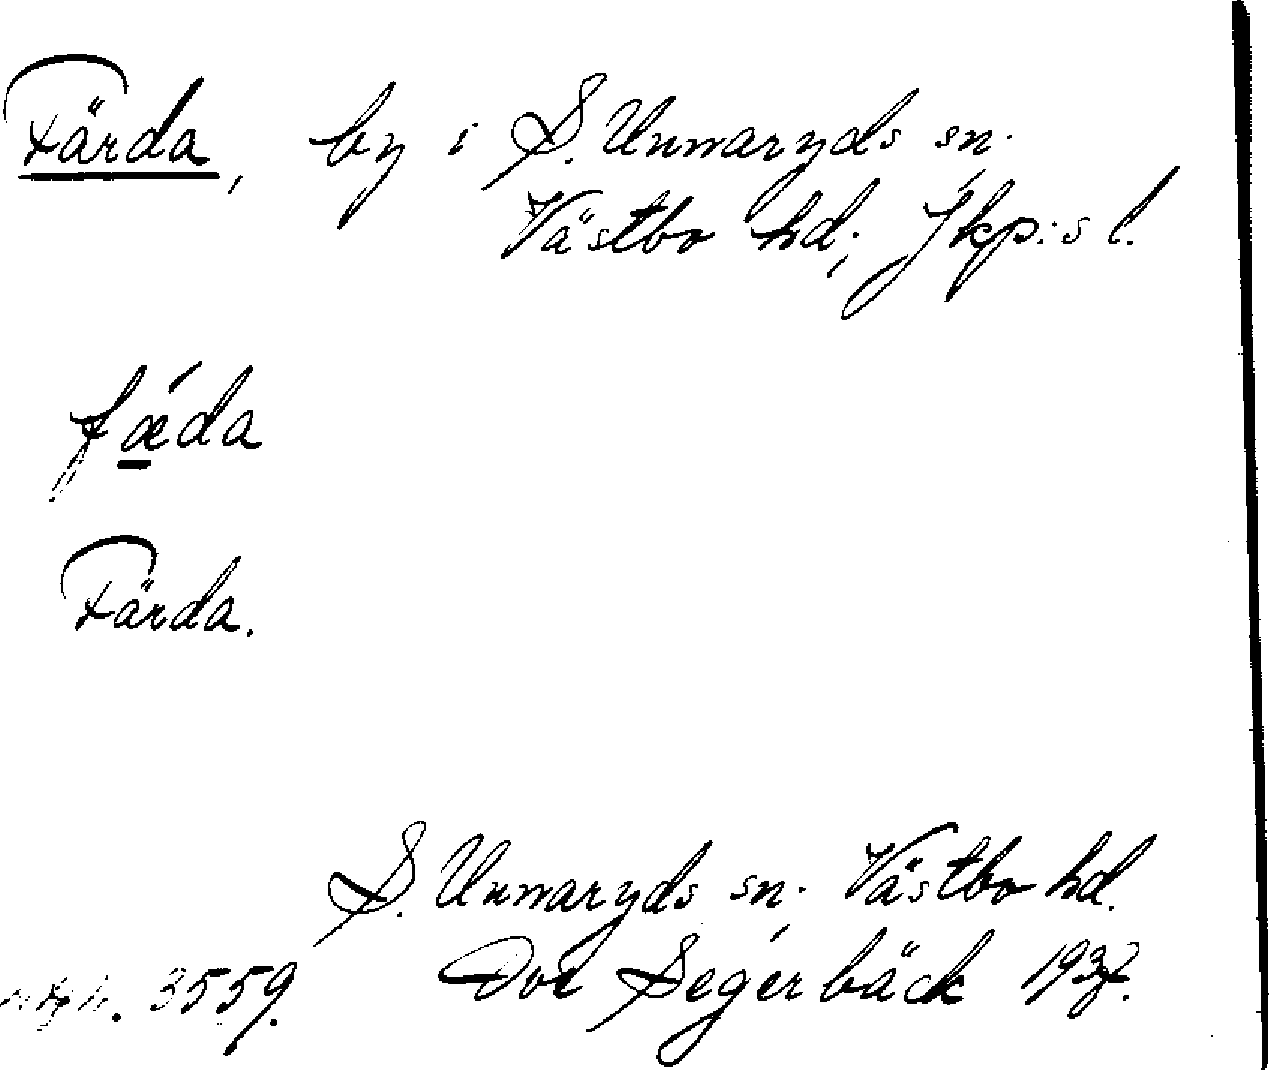 Färda, by i S. Unnaryds sn.
Västbo hd; Jkp:s l.
fǽda
Färda.
S. Unnaryds sn. Västbo hd.
3559. Dor Segerbäck 1937.